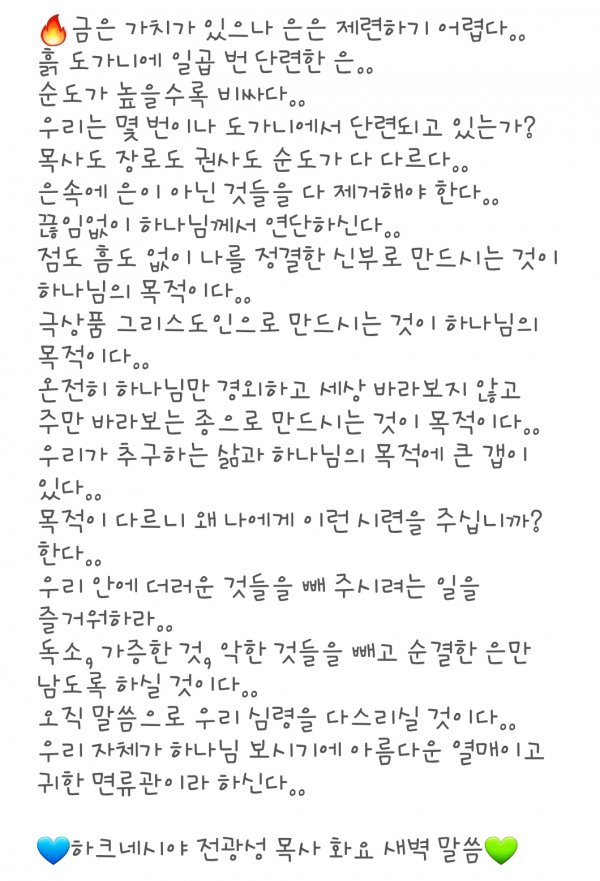 🔥금은 가치가 있으나 은은 제련하기 어렵다..
흙 도가니에 일곱 번 단련한 은..
순도가 높을수록 비싸다..
우리는 몇 번이나 도가니에서 단련되고 있는가?
목사도 장로도 권사도 순도가 다 다르다..
은속에 은이 아닌 것들을 다 제거해야 한다..
끊임없이 하나님께서 연단하신다..
점도 흠도 없이 나를 정결한 신부로 만드시는 것이
하나님의 목적이다..
극상품 그리스도인으로 만드시는 것이 하나님의
목적이다..
온전히 하나님만 경외하고 세상 바라보지 않고
주만 바라보는 종으로 만드시는 것이 목적이다..
우리가 추구하는 삶과 하나님의 목적에 큰 갭이
있다..
목적이 다르니 왜 나에게 이런 시련을 주십니까?
한다..
우리 안에 더러운 것들을 빼 주시려는 일을
즐거워하라..
독소, 가증한 것, 악한 것들을 빼고 순결한 은만
남도록 하실 것이다..
오직 말씀으로 우리 심령을 다스리실 것이다..
우리 자체가 하나님 보시기에 아름다운 열매이고
귀한 면류관이라 하신다..
💙하크네시야 전광성 목사 화요 새벽 말씀💚